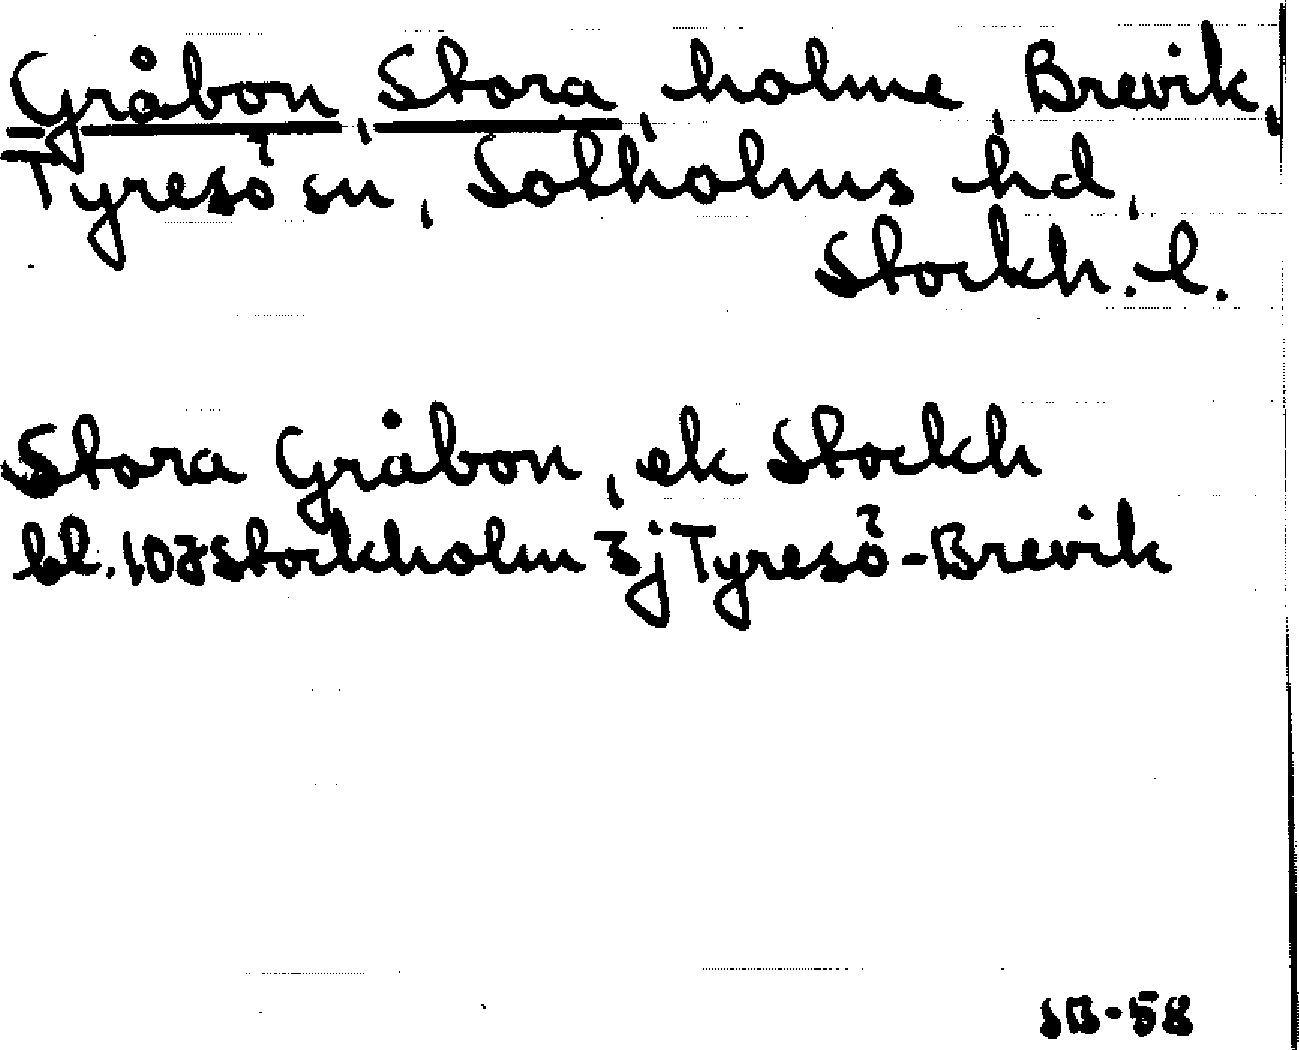 Gråbon, Stora, holme, Brevik,
Tyresö sn, Sotholms hd,
Stockh. l.
Stora Gråbon, ek Stockh
bl. 107 Stockholm 3j Tyresö-Brevik
SB-58